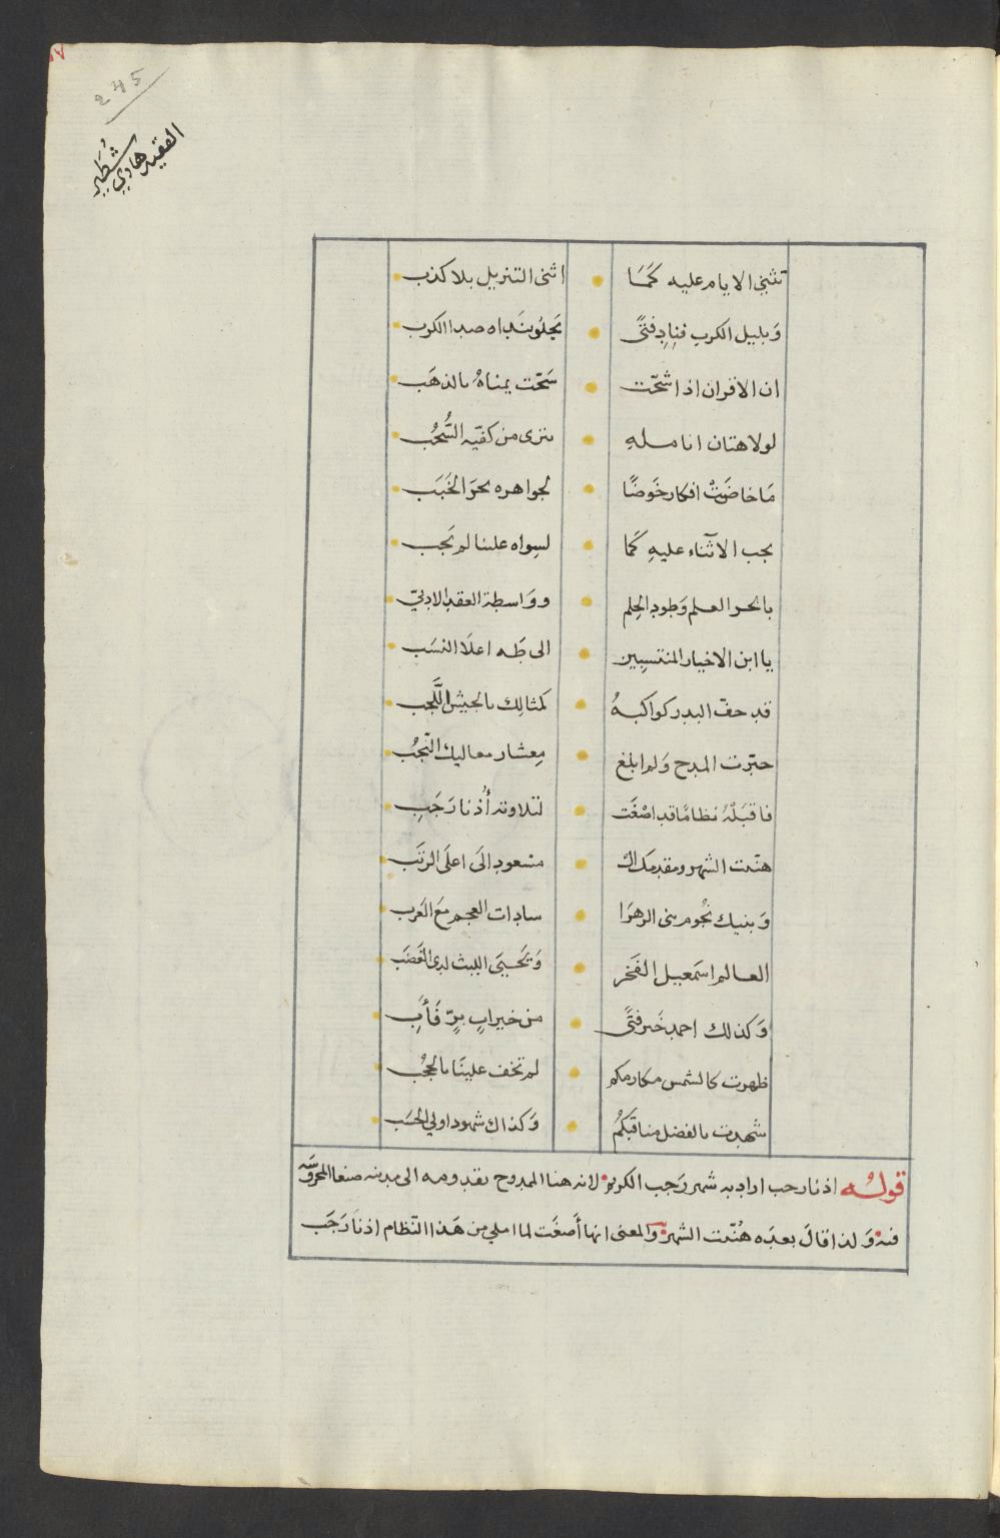 245
الفقيه هادي شُطَير
تثني الايام عليه كَمَا اثنى التنزيل بلا كذب
وَبليل الكرب فنادِ فتًى يَجلُو بنَداه صدا الكرب
ان الاقران اذا شحّت سَحّت يمناهُ بالذهَب
لولا هتان انامله تزرى من كفّيه السُّحُب
مَا خاضَتْ افكار خَوضًا لجواهره نحوَ الخَبَب
يجب الاثناء عليهِ كَمَا لسِواه علينا لم يَجب
يا بحر العلم وَطود الحِلم ووَاسطة العقد الادبيّ
يا ابن الاخيار المنتسِبين الى طَه اعلَا النسَب
قد حفّ البدر كواكبهُ كمثالِك بالجيش اللَّجب
حبّرت المدح وَلم ابلغ مِعشار معاليك النّجُب
فاقبَلْهُ نظامًا قد اصْغَت لتلاوته أُذنا رَجَبِ
هنّئت الشهر ومقدمك ال مسعود الَى اعلَى الرتَب
وَبنيك نُجوم بني الزهرَا سادات العجم مَع العَرب
العالم اسمَعيل الفَخر وَيَحيَى الليث لدى الغَضَب
وَكذلك احمد خَير فتًى من خير ابٍ برٍّ فَأَبِ
ظهرت كالشمس مكارمكم لم تخف علينَا بالحجُب
شهدت بالفضل مناقبكُم وَكذاك شهود اولي الحسَب
قولُه اذنا رجب اراد به شهر رَجب الكريم لانه هنا الممدوح بقدومه الى مدينه صنعا المحروسَه
فيه وَلذا قالَ بعدَه هُنّئت الشهر والمعنى انها أَصغَت لما املي من هَذا النّظام اذنا رَجَب